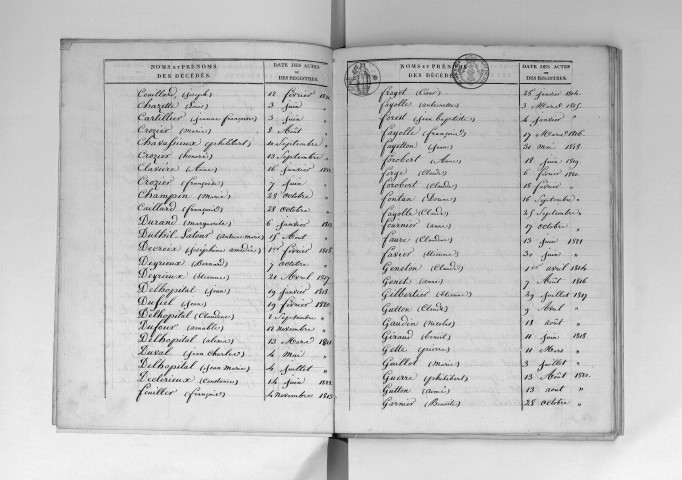 NOMS ET PRÉNOMS DES DÉCÉDÉS. DATE DES ACTES OU DES REGISTRES.
Couillard, (Joseph) 12 février
Chazette 3 Juin "
Cartillier (Jeanne françoise) 3 Juin "
Crozier (Marie) 8 Août "
Chavassieux (philibert) 4 Septembre "
Crozier (honoré) 13 Septembre "
Claviere (Anne) 16 Janvier
Crozier (françoise) 7 Juin "
Champin (Marie) 28 Octobre "
Caillard (françois) 28 Octobre "
Durand (marguerite) 6 Janvier
Duthil Latour (antoine marie) 15 Août "
Decroix (Joséphine amédée) 1er février 1815.
Deyrieux (Bernard) 7 Octobre "
Deyrieux (Etienne) 21 Avril 1817
Delhopital (Jean) 19 Janvier
Dufiel (Jean) 19 février
Delhopital (Claudine) 2 Septembre "
Dufour (amable) 12 Novembre "
Delhopital (alexis) 13 Mars
Duval (Jean Charles) 4 Mai "
Delhopital (Jean Marie) 4 Juillet "
Declérieux 14 Juin
feuiller (françois) 4 Novembre 1813
NOMS ET PRÉNOMS DES DÉCÉDÉS. DATE DES ACTES OU DES REGISTRES.
froget 25 Janvier 1814.
fayolle (antoinette) 3 Mars 1815.
forest (Jean baptiste) 4 Janvier "
fayolle (françoise) 17 Mars 1816.
fayetton (Jean) 31 mai 1818
forobert (Anne) 18 Juin 1819.
forge (Claude) 6 février 1820.
forobert (Claude) 18 février "
fontan 16 Septembre "
fayolle (Claude) 25 Septembre "
fournier (anne) 17 Octobre "
faure (Claudine) 13 Juin 1821
favier (Etienne) 30 Juin "
Geneton (Claude) 1er avril 1814
Genet (anne) 7 Août 1816
Gilbertier (Etienne) 29 Juillet 1817
Gutton (Claude) 9 Avril "
Gaudin (Nicolas) 18 août "
Giraud (benoit) 11 Juin 1818
Gette (pierre) 11 Mars "
Guillot (Marie) 3 Juillet "
Guerre (philibert) 13 Août 1820.
Gutton (aimé) 13 août "
Garnier (Benoite) 28 Octobre "